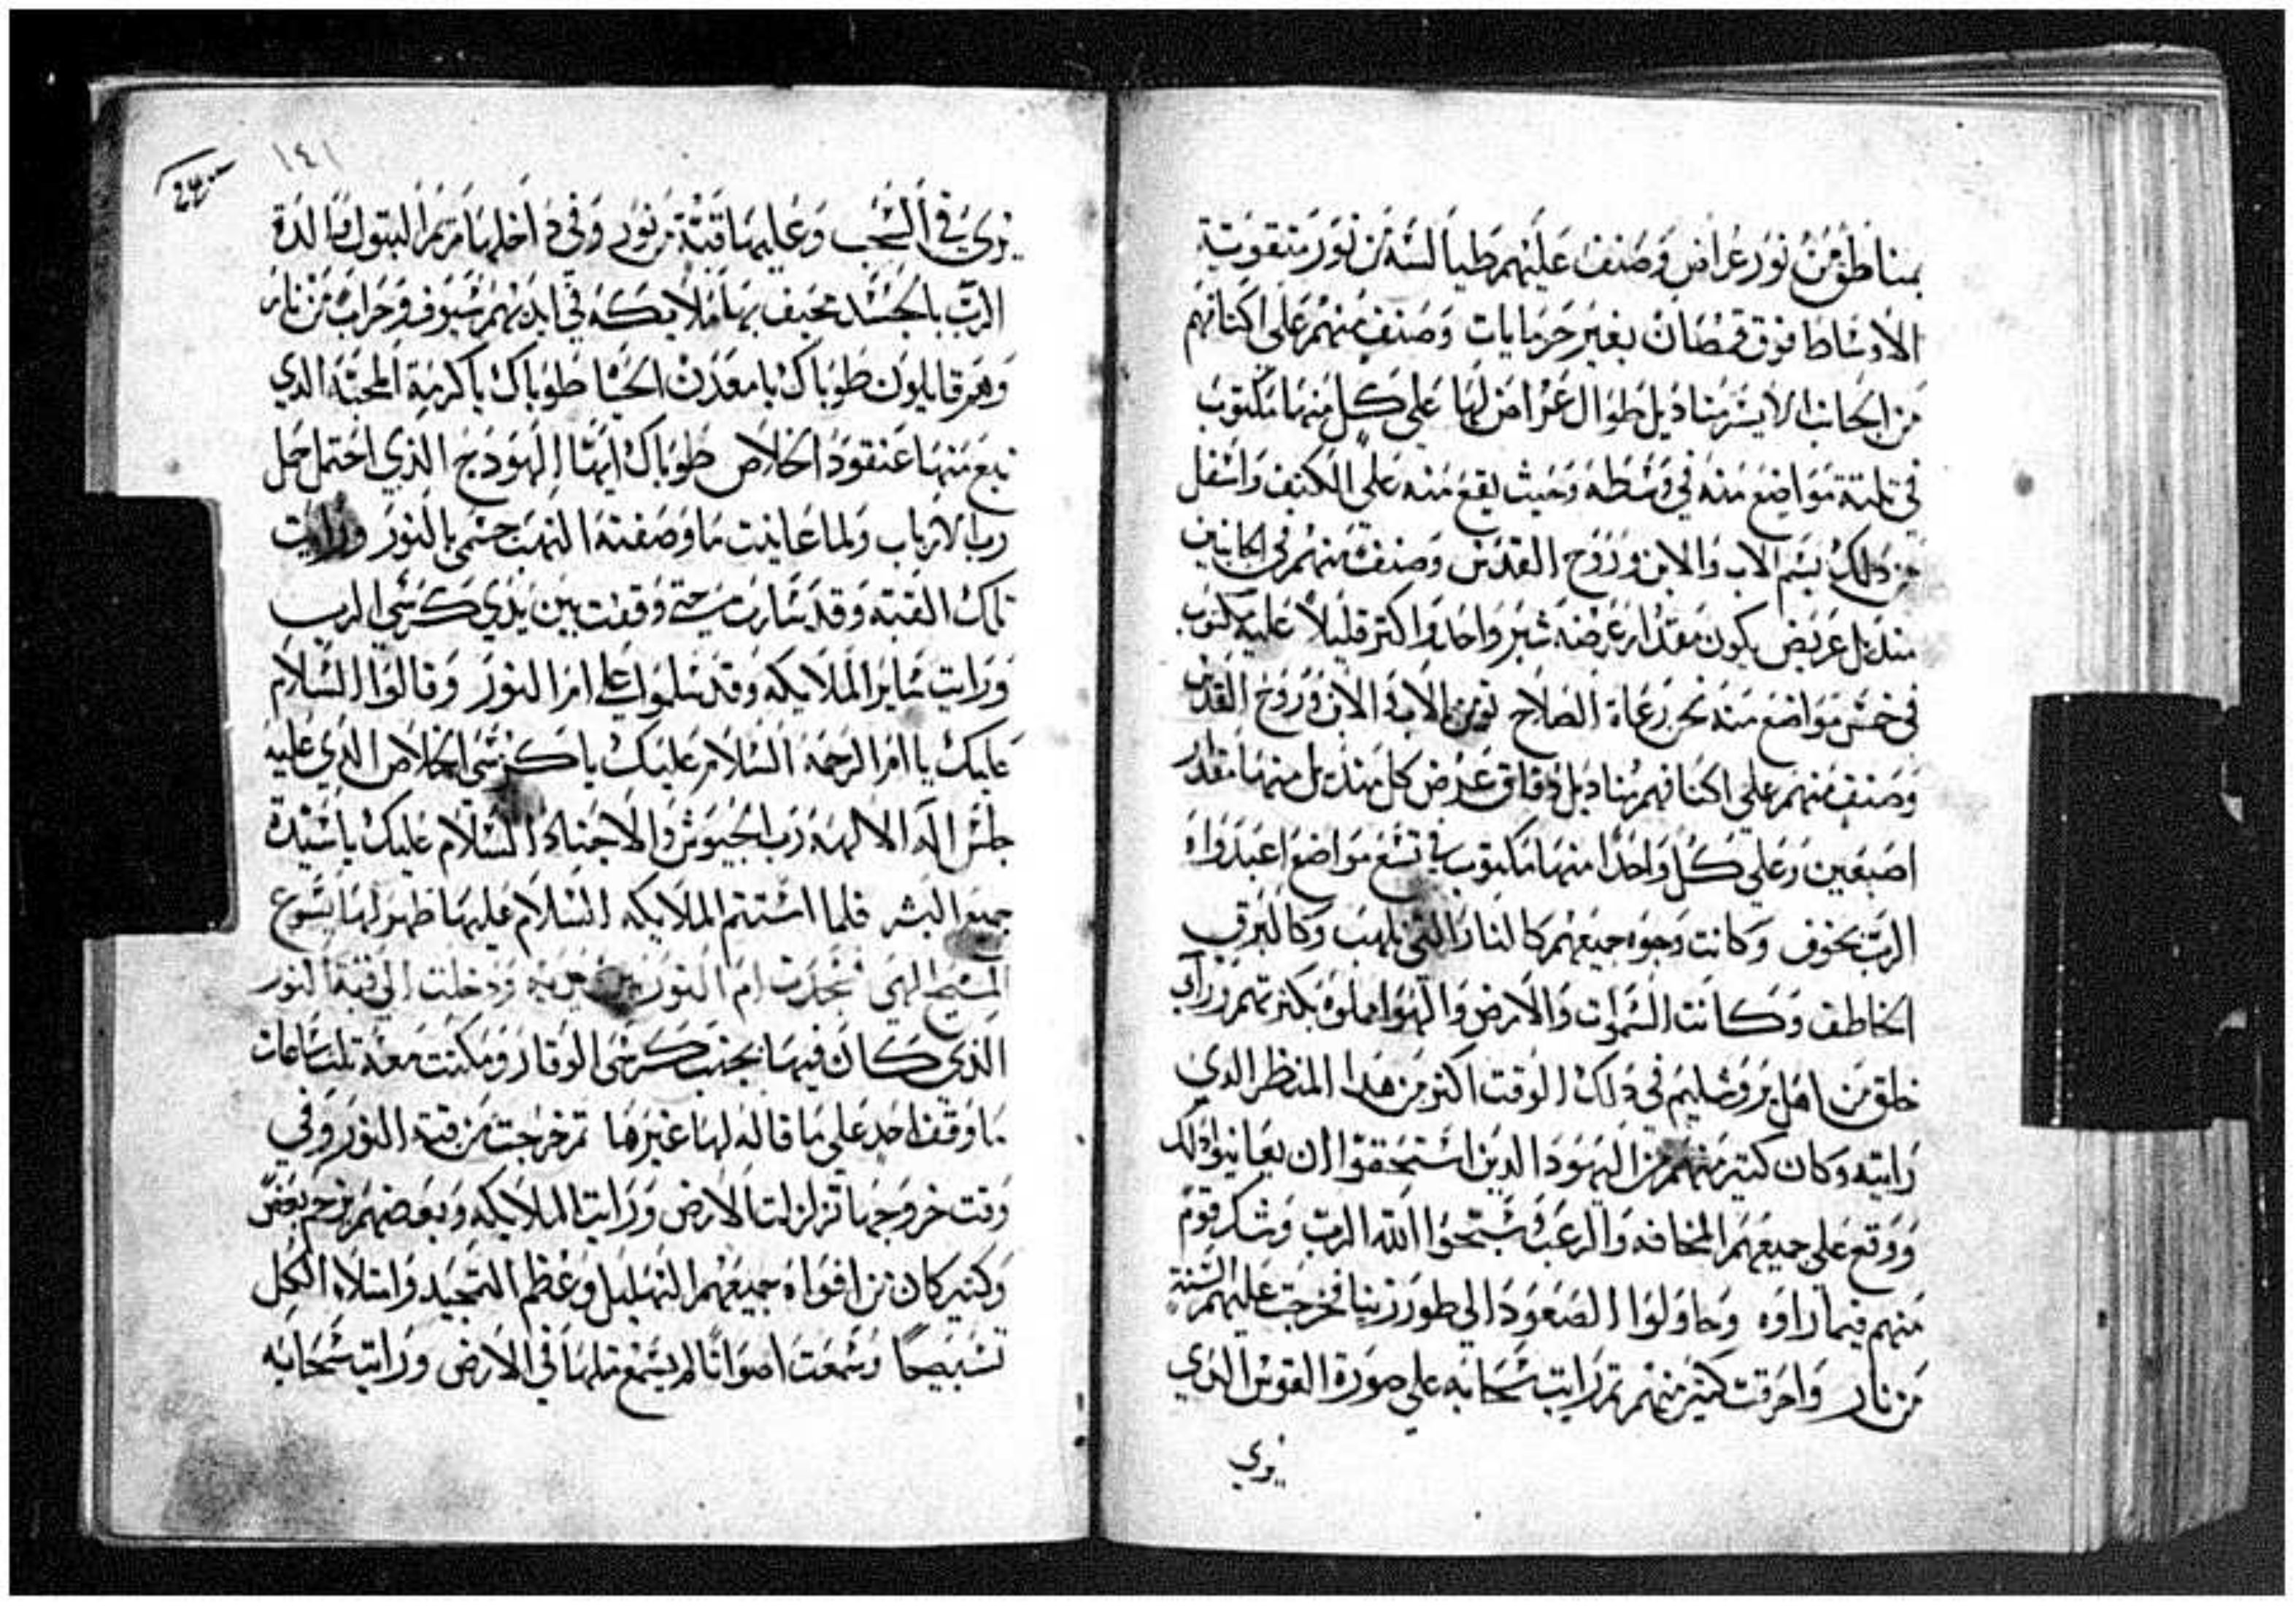 بمناطق من نور عراض وصنف عليهم طيالسة من نور متقوتية
الاوساط فوق قمصان بغير حرمايات وصنف منهم على اكتافهم
من الجانب الايسر مناديل طوال عراض لها على كل منها مكتوب
في تلتة مواضع منه في وسطه وحيث يقع منه على الكتف واسفل
من دلك بسم الاب والابن وروح القدس وصنف منهم في الجانبين
منديل عريض يكون مقدار عرضه شبر واحد واكتر قليلاً عليه مكتوب
في خمس مواضع منه نحن رعاة الصلاح نومن بالاب والابن وروح القدس
وصنف منهم على اكتافهم مناديل دقاق عرض كل منديل منها مقدار
اصبعين وعلى كل واحدا منها مكتوب في تسع مواضع اعبدوا
الرب بخوف وكانت وجوه جميعهم كالنار التي تلهب وكالبرق
الخاطف وكانت السموات والارض والهوا مملوه بكترتهم وراي
خلق من اهل يروشليم في دلك الوقت اكتر من هدا المنظر الدي
رايته وكان كتير منهم من اليهود الدين استحقوا ان يعاينوا دلك
ووقع على جميعهم المخافه والرعب وسبحوا الله الرب وشك قوم
منهم فيما راوه وحاولوا الصعود الي طور زيتا فخرجت عليهم السنة
من نار واحرقت كتير منهم تم رايت سحابه على صورة القوس الدي
يري
١٤١
يري في السحب وعليها قبة من نور وفي داخلها مريم البتول والدة
الرب بالجسد تحيف بها ملايكه في ايديهم سيوف وحراب من نار
وهم قايلون طوباك يا معدن الحيا طوباك يا كرمة المحبة الدي
نبع منها عنقود الخلاص طوباك ايها الهودج الذي احتمل حمل
رب الارباب ولما عاينت ما وصفته التهب جسمي بالنور ورايت
تلك القبه وقد سارت حتي وقفت بين يدي كرسي الرب
ورايت ساير الملايكه وقد سلموا على ام النور وقالوا السلام
عليك يا ام الرحمة السلام عليك يا كرسي الخلاص الدي عليه
جلس اله الالهه رب الجيوش والاجناد السلام عليك يا سيدة
جميع البشر فلما استتم الملايكه السلام عليها ظهر لها يسوع
المسيح الهي فسجدت ام النور بين يديه ودخلت الى قبة النور
الذي كان فيها بجنب كرسي الوقار ومكتت معه تلت ساعات
ما وقف احد على ما قاله لها غيرها تم خرجت من قبة النور وفي
وقت خروجها تزلزلت الارض ورايت الملايكه وبعضهم يزحم بعض
وكتير كان من افواه جميعهم التهليل وعظم التمجيد وامتلاء الكل
تسبيحاً وسمعت اصواتا لم يسمع متلها في الارض ورايت سحابه